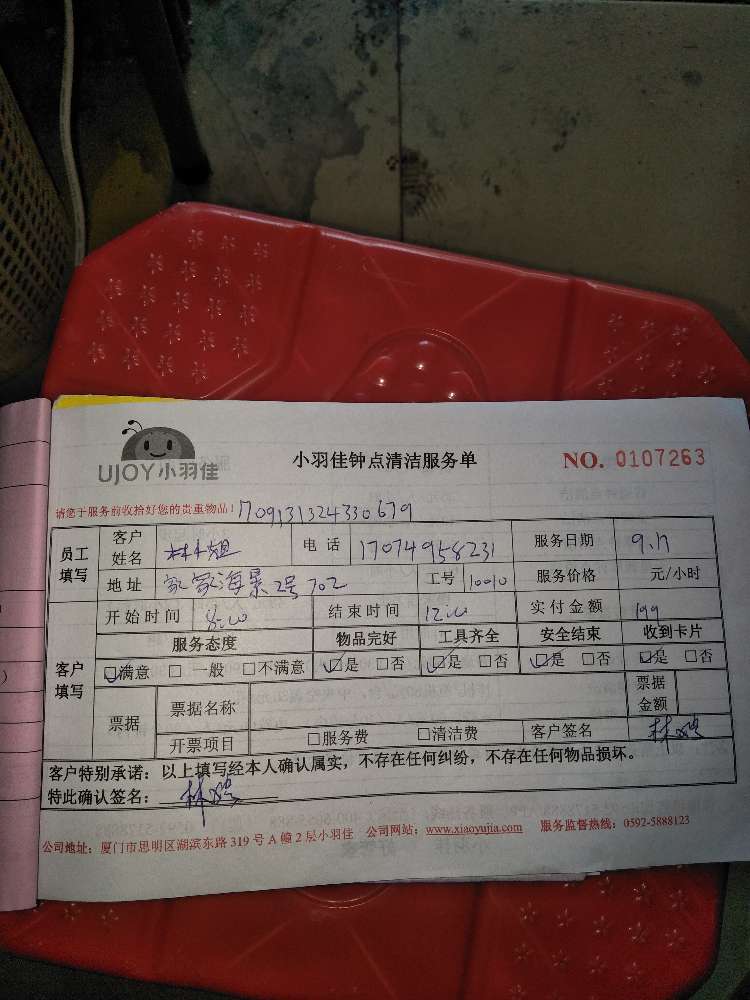 UJOY小羽佳 小羽佳钟点清洁服务单 NO. 0107263
请您于服务前收拾好您的贵重物品! 1709131324330679
员工填写 客户姓名 林小姐 电话 17074958231 服务日期 9.17
地址 家家海景2号702 工号 10010 服务价格 元/小时
开始时间 8:00 结束时间 12:00 实付金额 199
客户填写 服务态度 物品完好 工具齐全 安全结束 收到卡片
☑满意 □一般 □不满意 ☑是 □否 ☑是 □否 ☑是 □否 ☑是 □否
票据 票据名称 票据金额
开票项目 □服务费 □清洁费 客户签名 林
客户特别承诺: 以上填写经本人确认属实,不存在任何纠纷,不存在任何物品损坏。
特此确认签名: 林
公司地址: 厦门市思明区湖滨东路319号A幢2层小羽佳 公司网站: www.xiaoyujia.com 服务监督热线: 0592-5888123